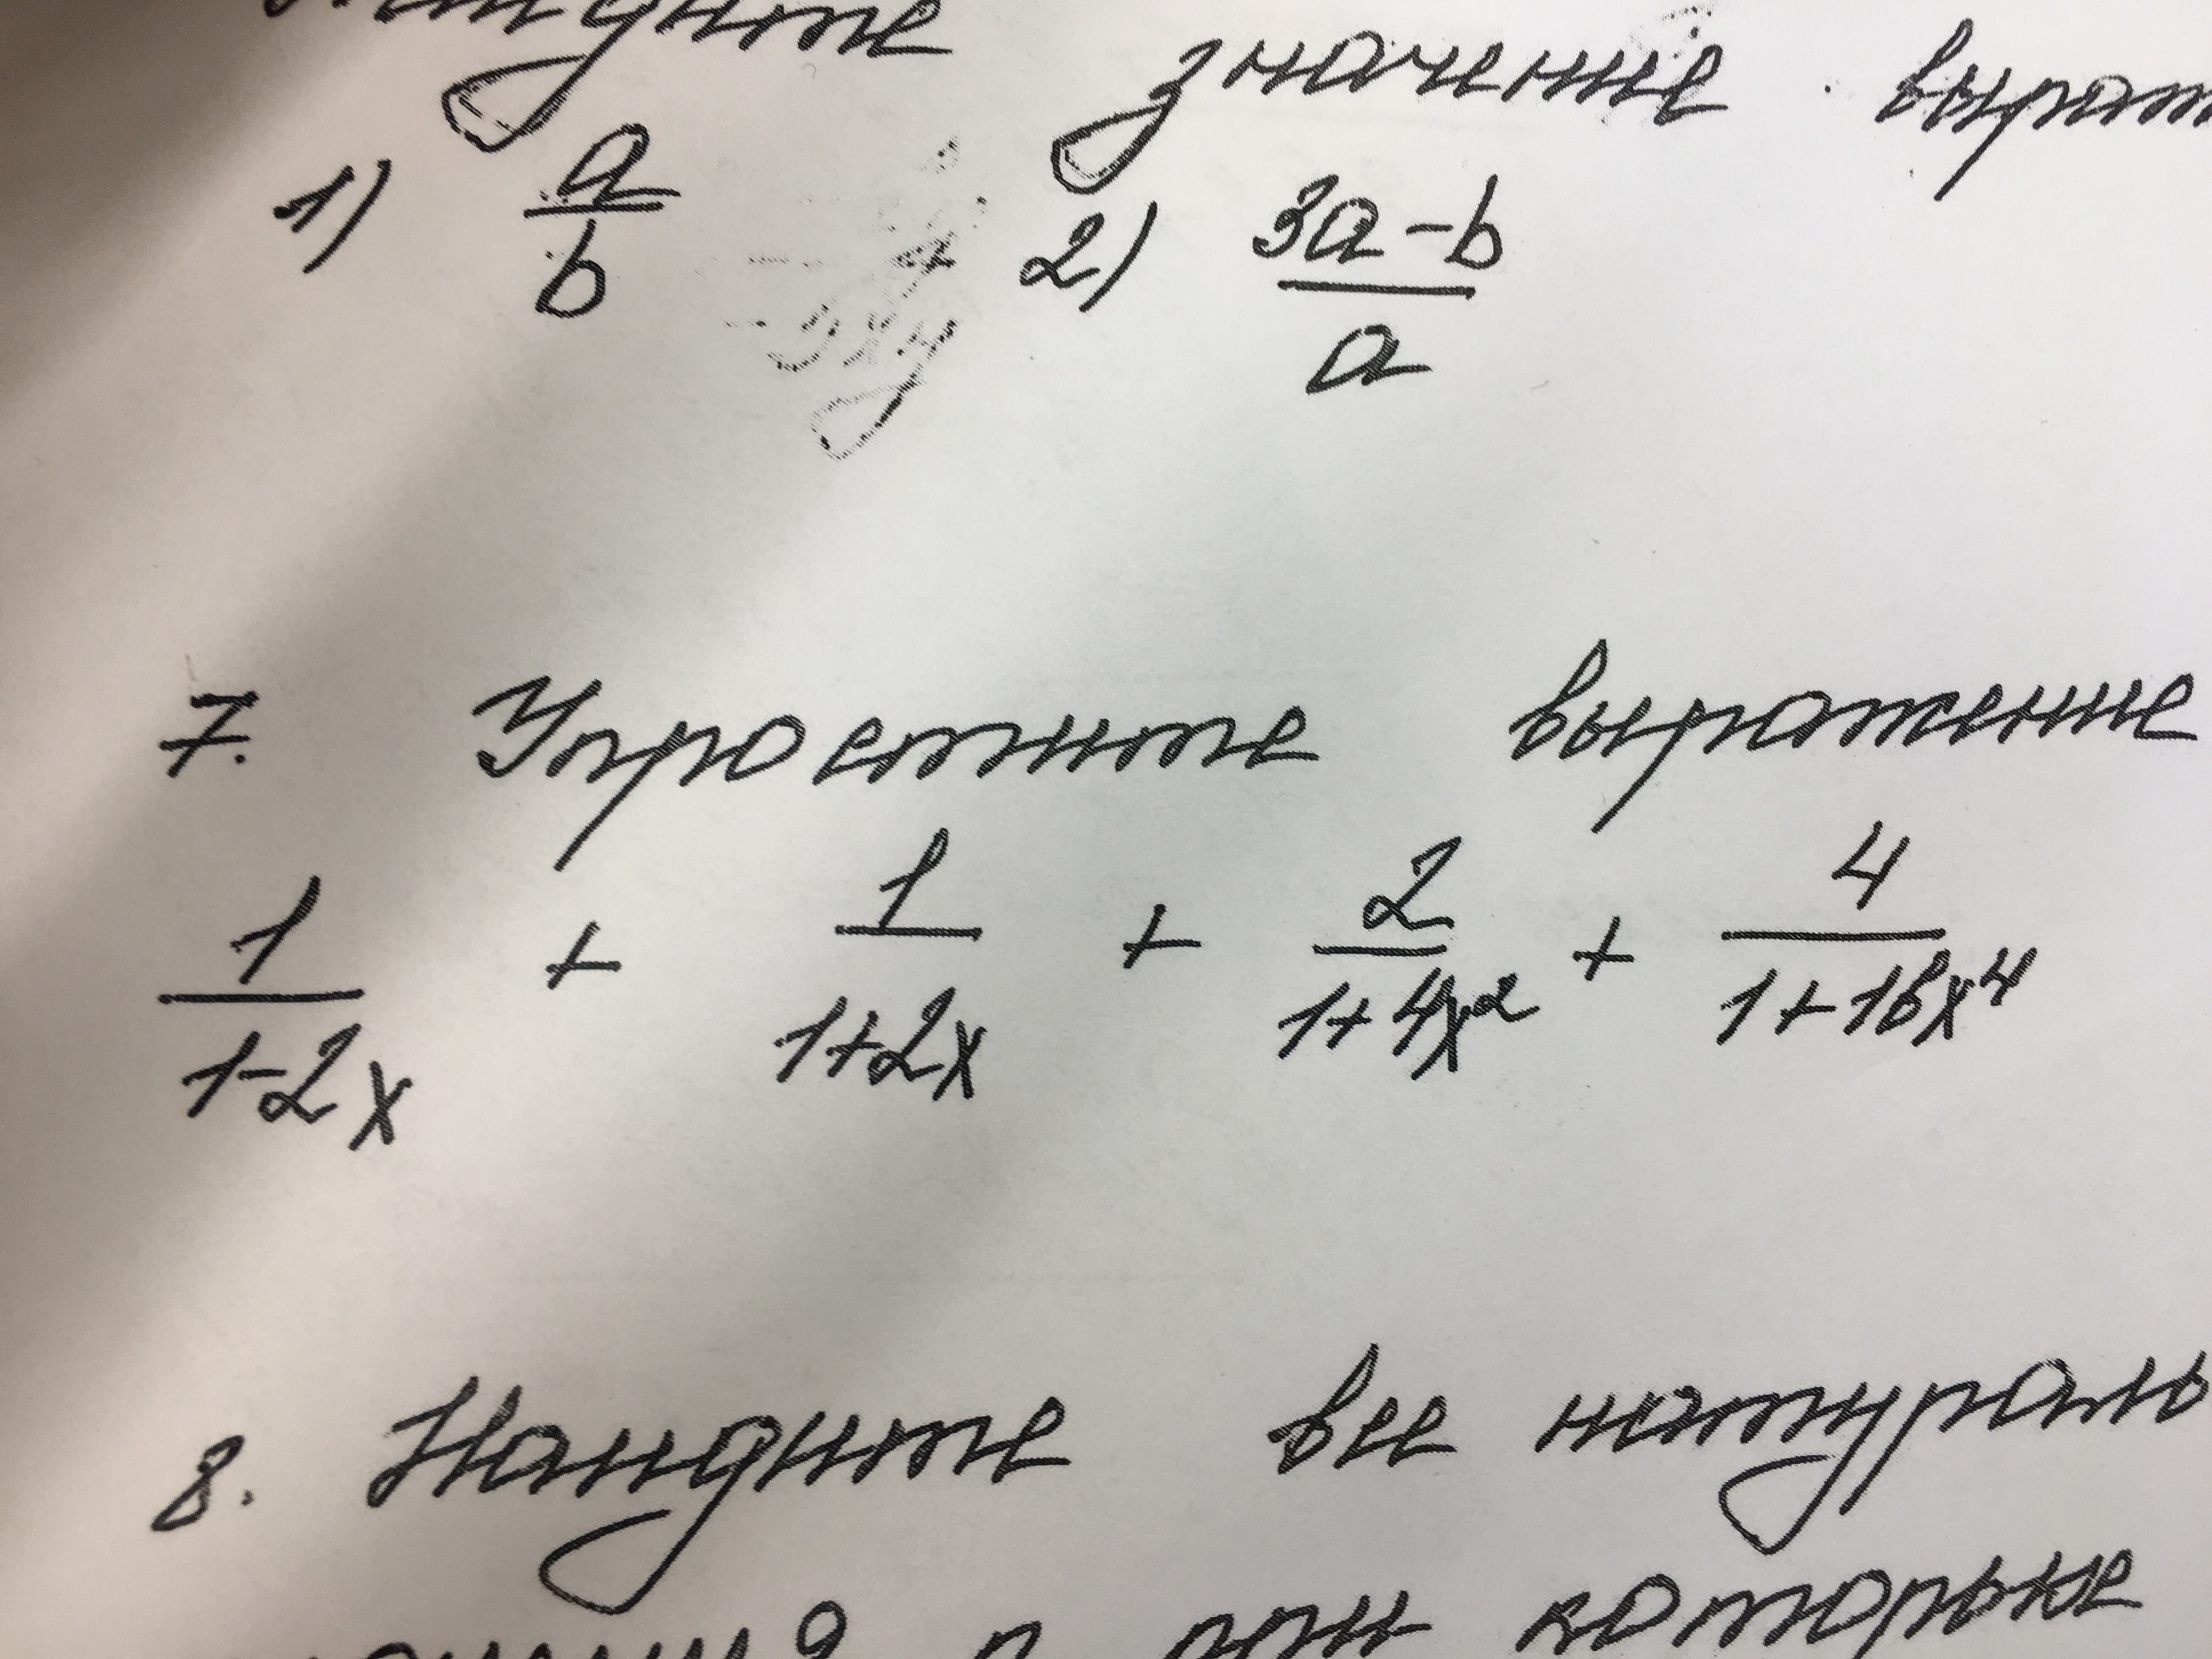 значение
1) a/b 2) (3a-b)/a
7. Упростите выражение
1/(1-2x) + 1/(1+2x) + 2/(1+4x²) + 4/(1+16x⁴)
8. Найдите все натураль
n при которые